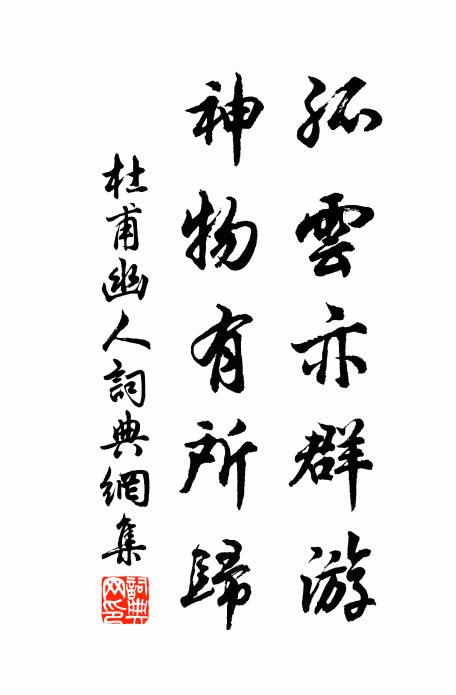 孤雲亦群游
神物有所歸
杜甫幽人詞典網集
詞典网印